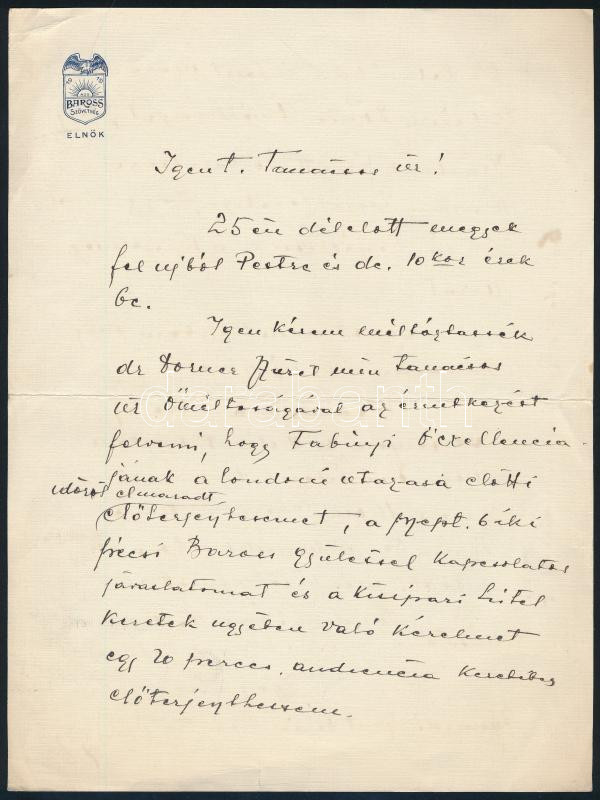 19 19
BAROSS
SZÖVETSÉG
ELNÖK
Igen t. Tanácsos úr!
25 én délelott megyek
fel ujból Pestre és de. 10 kor érek
be.
Igen kérem méltóztassék
dr Aurél min tanácsos
úr Őméltóságával az érintkezést
felvenni, hogy Fabinyi Őexellenciá-
jának a londoni utazása előtti
időről elmaradt
előterjesztésemet, a szept. 6 iki
pécsi Baross gyűléssel kapcsolatos
javaslatomat és a kisipari hitel
keretek ugyében való kérelmet
egy 20 perces audiencia keretében
előterjeszthessem.